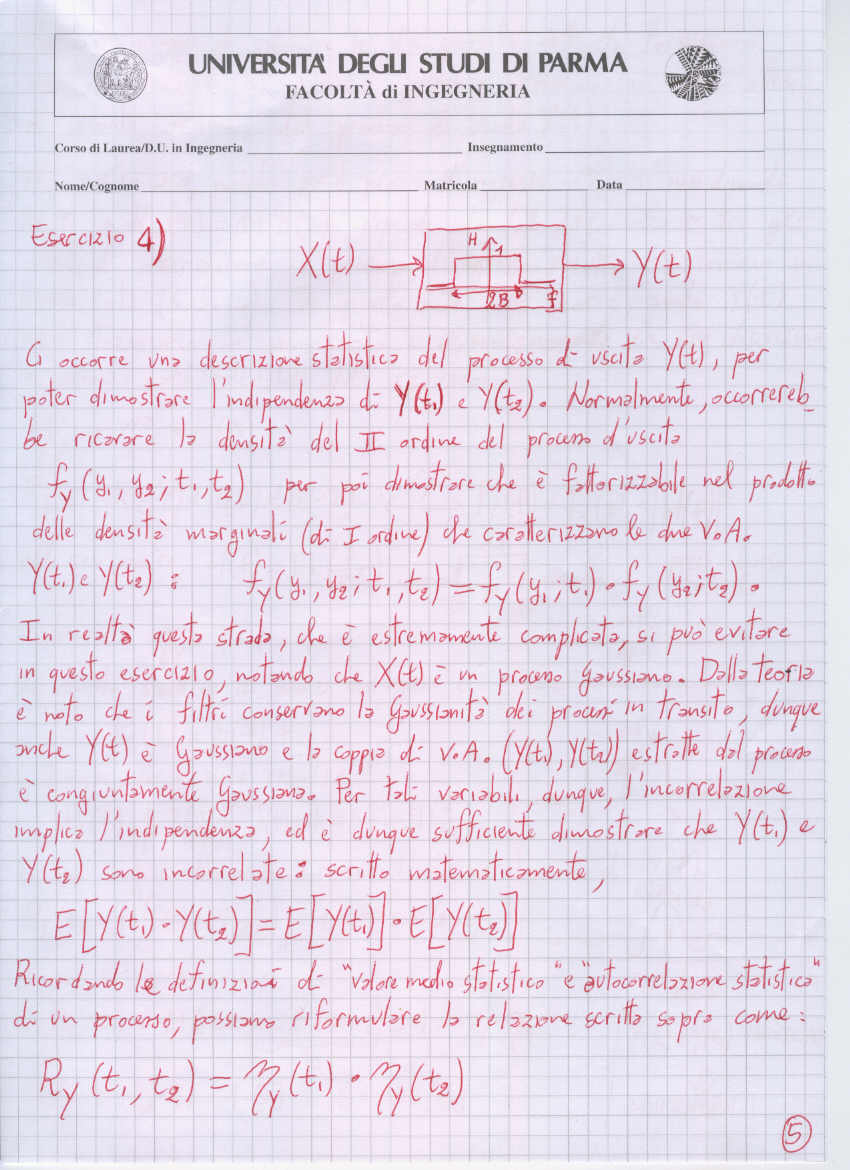 UNIVERSITA' DEGLI STUDI DI PARMA
FACOLTÀ di INGEGNERIA
Corso di Laurea/D.U. in Ingegneria Insegnamento
Nome/Cognome Matricola Data
Esercizio 4)
X(t) H 1 2B f Y(t)
Ci occorre una descrizione statistica del processo di uscita Y(t), per
poter dimostrare l'indipendenza di Y(t₁) e Y(t₂). Normalmente, occorrereb_
be ricavare la densità del II ordine del processo d'uscita
f_Y(y₁, y₂; t₁, t₂) per poi dimostrare che è fattorizzabile nel prodotto
delle densità marginali (di I ordine) che caratterizzano le due V.A.
Y(t₁) e Y(t₂) : f_Y(y₁, y₂; t₁, t₂) = f_Y(y₁; t₁) · f_Y(y₂; t₂).
In realtà questa strada, che è estremamente complicata, si può evitare
in questo esercizio, notando che X(t) è un processo Gaussiano. Dalla teoria
è noto che i filtri conservano la Gaussianità dei processi in transito, dunque
anche Y(t) è Gaussiano e la coppia di V.A. (Y(t₁), Y(t₂)) estratte dal processo
è congiuntamente Gaussiana. Per tali variabili, dunque, l'incorrelazione
implica l'indipendenza, ed è dunque sufficiente dimostrare che Y(t₁) e
Y(t₂) sono incorrelate : scritto matematicamente,
E[Y(t₁)·Y(t₂)] = E[Y(t₁)]·E[Y(t₂)]
Ricordando le definizioni di "valore medio statistico" e "autocorrelazione statistica"
di un processo, possiamo riformulare la relazione scritta sopra come :
R_Y(t₁, t₂) = η_Y(t₁) · η_Y(t₂)
5